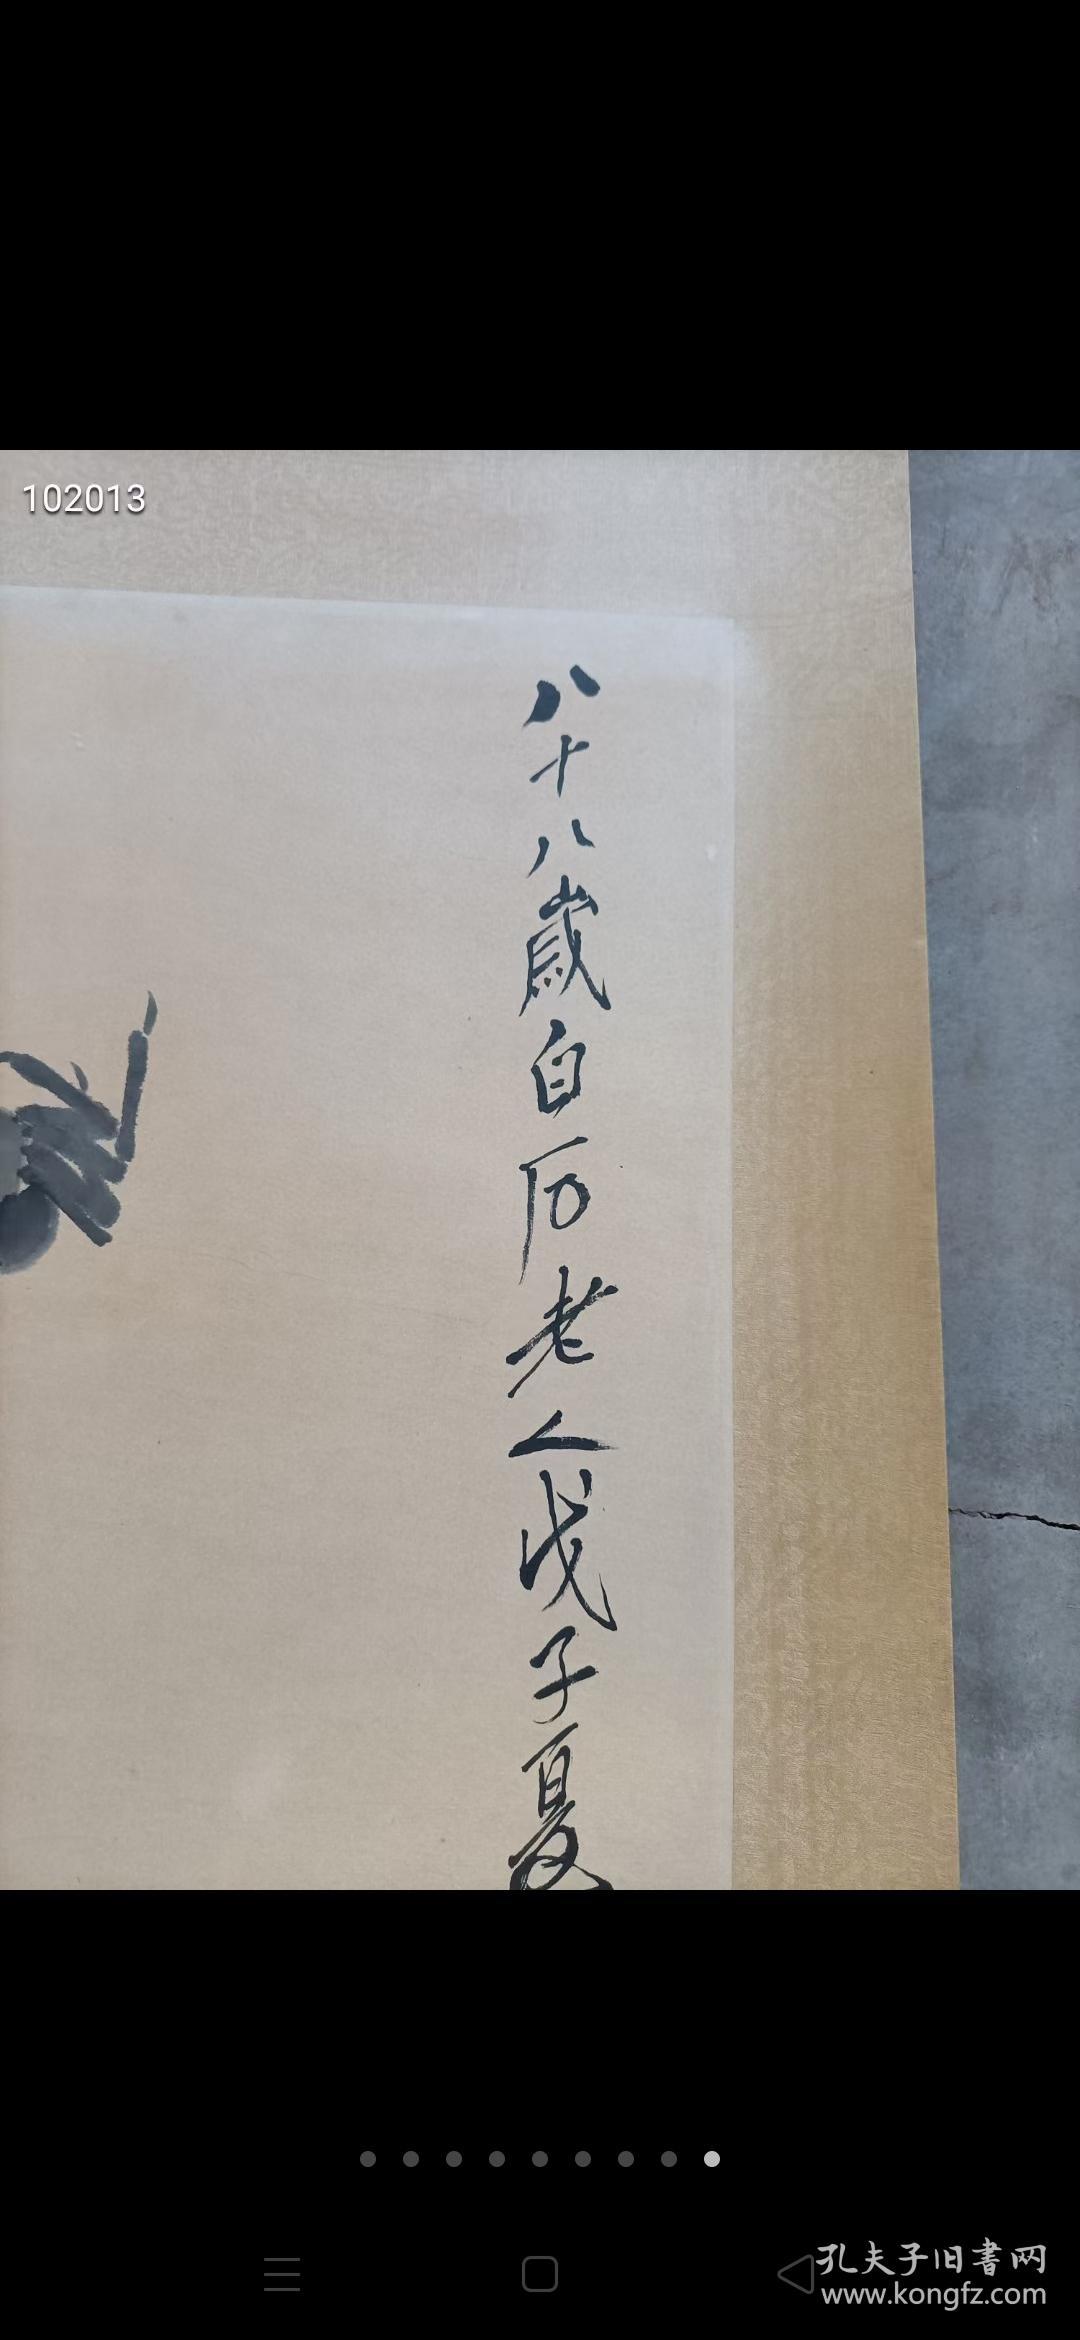 102013
八十八歲白石老人戊子夏
孔夫子旧書网
www.kongfz.com